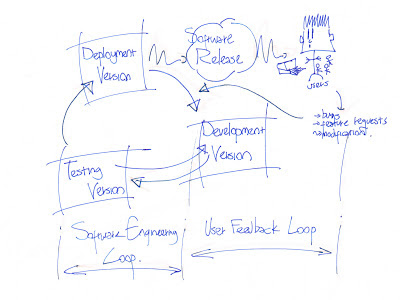 Deployment
Version
Software
Release
!!
users
→ bugs
→ feature requests
→ modification.
Development
Version
Testing
Version
Software Engineering
Loop.
User Feedback Loop